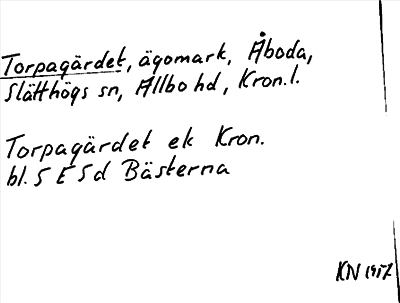 Torpagärdet, ägomark, Åboda,
Slätthögs sn, Allbo hd, Kron.l.
Torpagärdet ek Kron.
bl. 5 E 5d Bästerna
KN 1957